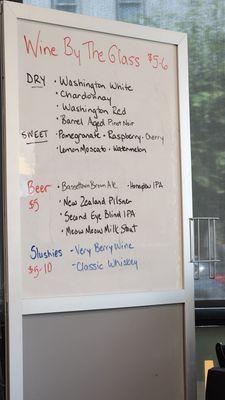 Wine By The Glass $5-6
DRY • Washington White
• Chardonnay
• Washington Red
• Barrel Aged Pinot Noir
SWEET • Pomegranate • Raspberry • Cherry
• Lemon Moscato • Watermelon
Beer • Bassettown Brown Ale • Honeydew IPA
$5 • New Zealand Pilsner
• Second Eye Blind IPA
• Meow Meow Milk Stout
Slushies - Very Berry Wine
$5-10 - Classic Whiskey